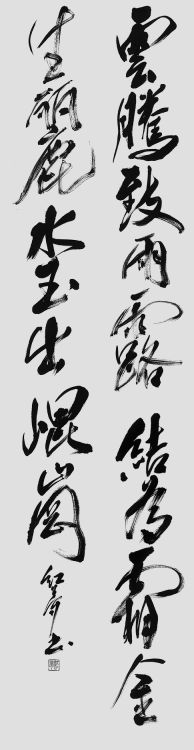 雲騰致雨露結為霜金
生麗水玉出崐崗